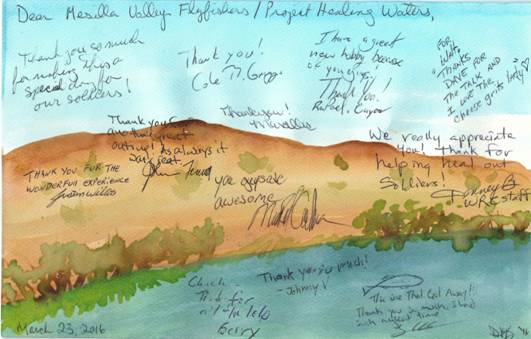 Dear Mesilla Valley Flyfishers / Project Healing Waters,
Thank you so much
for making this a
special day for
our soldiers!
Thank you!
Cole M.
I have a great
new hobby because
of you guys!
Thank You!
Rafael
For,
Walt,
"Thanks
Dave for
the talk and
I love the
cheese grits
Thank you for
another great
outing! As always it
was great.
Thank you!
We really appreciate
you! Thank for
helping heal our
Soldiers!
WRC staff
Thank you for the
wonderful experience
you guys are
awesome
Chuck
Gerry
Thank you so much!
- Johnny V
The one That Got Away!!!
Thank you so much, I had
such a great time
March 23, 2016